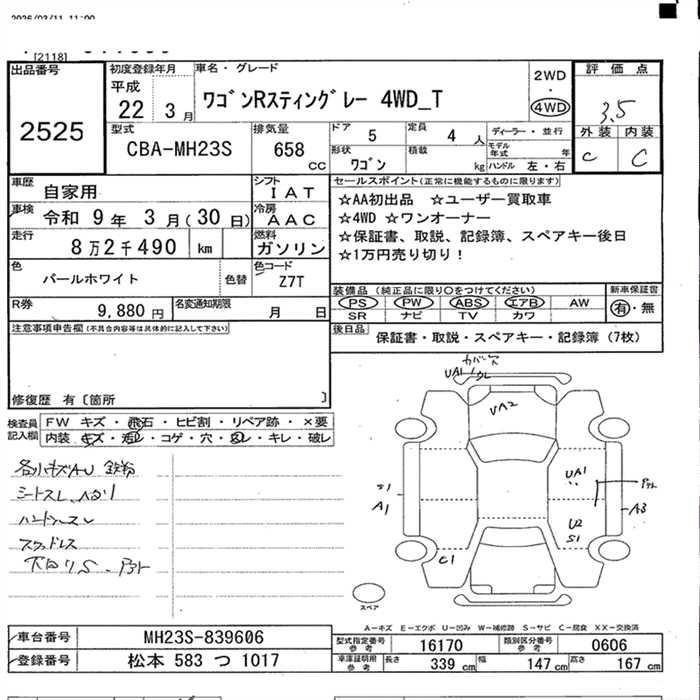 2026/03/11 11:00
[2118]
出品番号
2525
初度登録年月
平成
22 3月
車名・グレード
ワゴンRスティングレー 4WD_T
2WD
・
4WD
評価点
3.5
外装 内装
C C
型式
CBA-MH23S
排気量
658
CC
ドア
5
定員
4 人
ディーラー・並行
モデル年式 年
形状
ワゴン
積載 kg
ハンドル 左・右
車歴
自家用
シフト
IAT
車検 令和 9年 3月(30日)
冷房
AAC
走行
8万2千490 km
燃料
ガソリン
色
パールホワイト
色替
色コード
Z7T
R券
9,880 円
名変通知期限
月 日
セールスポイント(正常に機能するものに限ります)
☆AA初出品 ☆ユーザー買取車
☆4WD ☆ワンオーナー
☆保証書、取説、記録簿、スペアキー後日
☆1万円売り切り!
装備品 (純正品に限り○をつけてください)
PS PW ABS エアB AW
SR ナビ TV カワ
新車保証書
有・無
後日品
保証書・取説・スペアキー・記録簿 (7枚)
注意事項申告欄(不具合内容等は具体的に記入して下さい)
修復歴 有〔箇所 〕
検査員記入欄
FW キズ・飛石・ヒビ割・リペア跡・×要
内装 キズ・汚レ・コゲ・穴・スレ・キレ・破レ
シートスレ、ヘタリ
カバー穴
UA1
UA2
UA1
U2
S1
S1
A1
A3
C1
スペア
A-キズ E-エクボ U-凹み W-補修跡 S-サビ C-腐食 XX-交換済
車台番号 MH23S-839606
登録番号 松本 583 つ 1017
型式指定番号 参考 16170
類別区分番号 参考 0606
車庫証明用 参考 長さ 339 cm 幅 147 cm 高さ 167 cm